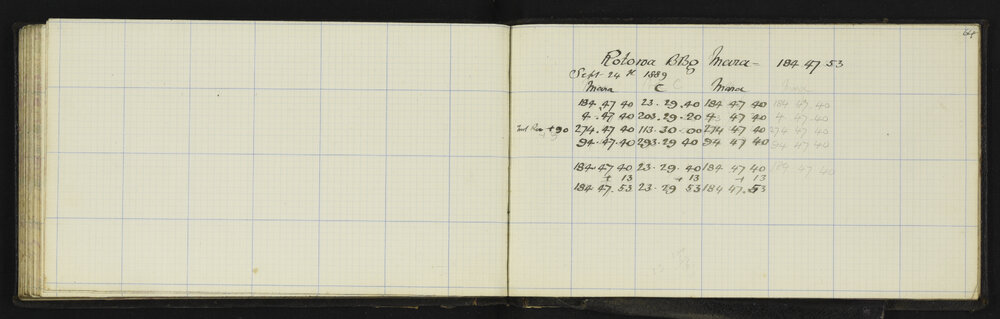 64
Rotowa BBg Meara = 184 47 53
Sept 24th 1889
Meara C Meara
184. 47 40 23. 29. 40 184 47 40 184 47. 40
4. 47 40 203. 29. 20 4 47 40 4. 47. 40
+90 274. 47 40 113. 30. 00 274 47 40 274 47 40
94. 47. 40 293. 29 40 94 47 40 94 47 40
184. 47 40 23. 29. 40 184 47 40 184 47 40
+ 13 + 13 + 13
184 47. 53 23. 29 53 184 47. 53